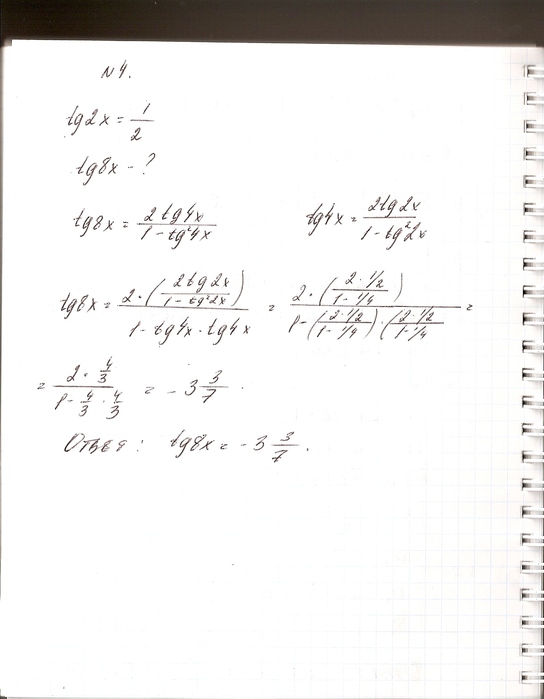 N4.
tg2x = 1/2
tg8x - ?
tg8x = 2tg4x / (1 - tg²4x)    tg4x = 2tg2x / (1 - tg²2x)
tg8x = 2·(2tg2x / (1 - tg²2x)) / (1 - tg4x·tg4x) = 2·(2·1/2 / (1 - 1/4)) / (1 - (2·1/2 / (1 - 1/4))·(2·1/2 / (1 - 1/4) =
= 2·4/3 / (1 - 4/3·4/3) = -3 3/7.
Ответ: tg8x = -3 3/7.